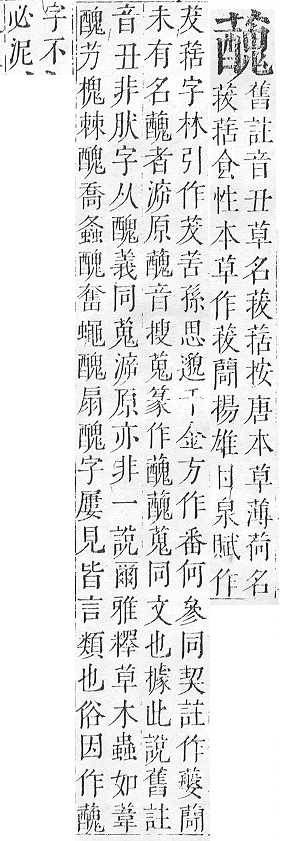 舊註音丑草名菝葀按唐本草薄荷名
菝葀食性本草作菝䕡揚雄甘泉賦作
茇葀字林引作茇苦孫思邈千金方作番何參同契註作䕡
未有名醜者㴑原醜音搜蒐篆作醜醜蒐同文也據此說舊註
音丑非肰字从醜義同蒐㴑原亦非一說爾雅釋草木蟲如葦
醜芳槐棘醜喬螽醜奮蠅醜扇醜字屢見皆言類也俗因作
字不
必泥